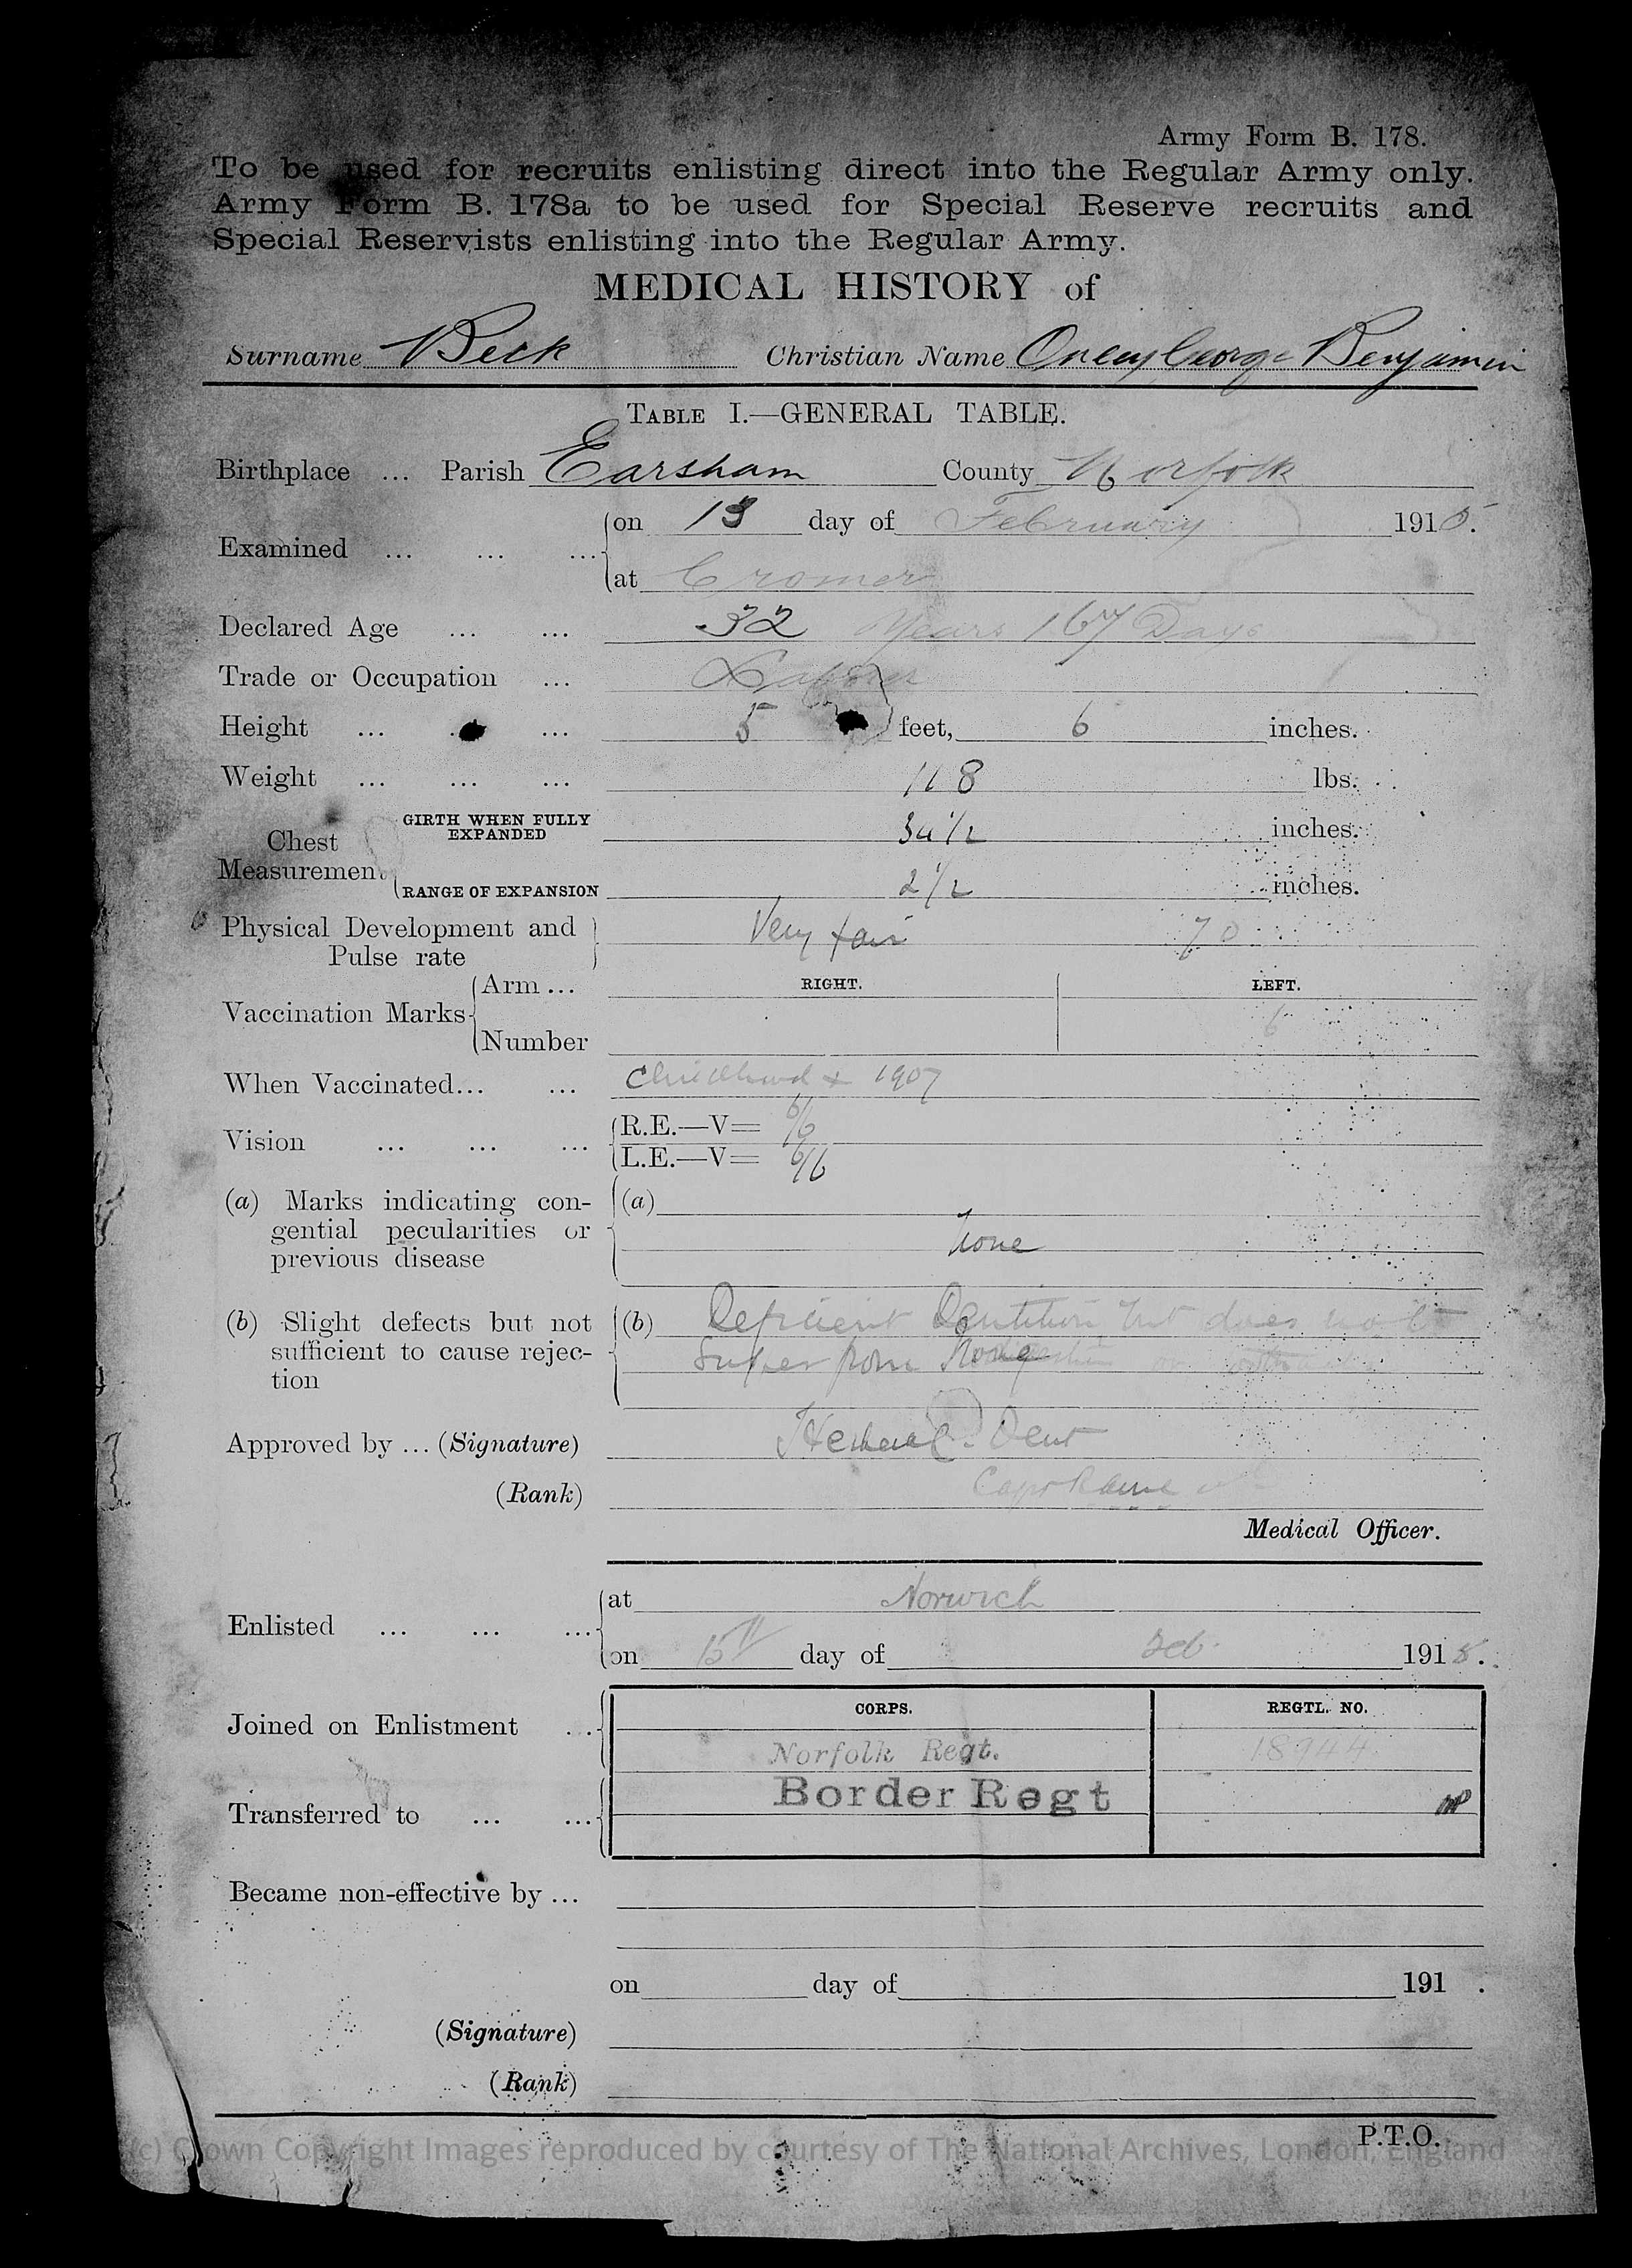 Army Form B. 178.
To be used for recruits enlisting direct into the Regular Army only.
Army Form B. 178a to be used for Special Reserve recruits and
Special Reservists enlisting into the Regular Army.
MEDICAL HISTORY of
Surname Beck Christian Name George Benjamin
TABLE I.—GENERAL TABLE.
Birthplace ... Parish Earsham County Norfolk
Examined ... ... ... on 13 day of February 1915.
at Cromer
Declared Age ... ... 32 Years 167 Days
Trade or Occupation ...
Height ... ... ... 5 feet, 6 inches.
Weight ... ... ... 118 lbs.
Chest Measurement GIRTH WHEN FULLY EXPANDED 34 1/2 inches.
RANGE OF EXPANSION 2 1/2 inches.
Physical Development and Pulse rate Very fair 70
Vaccination Marks Arm ... RIGHT. LEFT.
Number 6
When Vaccinated... ... Childhood + 1907
Vision ... ... ... R.E.—V= 6/6
L.E.—V= 6/6
(a) Marks indicating con- (a)
gential pecularities or None
previous disease
(b) Slight defects but not (b) Deficient Dentition but does not
sufficient to cause rejec- suffer from
tion
Approved by ... (Signature) Dent
(Rank) Capt RAMC
Medical Officer.
Enlisted ... ... ... at Norwich
on 15th day of Feb. 1915.
CORPS. REGTL. NO.
Joined on Enlistment ... Norfolk Regt. 18944
Border Regt
Transferred to ... ...
Became non-effective by ...
on day of 191 .
(Signature)
(Rank)
P.T.O.
(c) Crown Copyright Images reproduced by courtesy of The National Archives, London, England